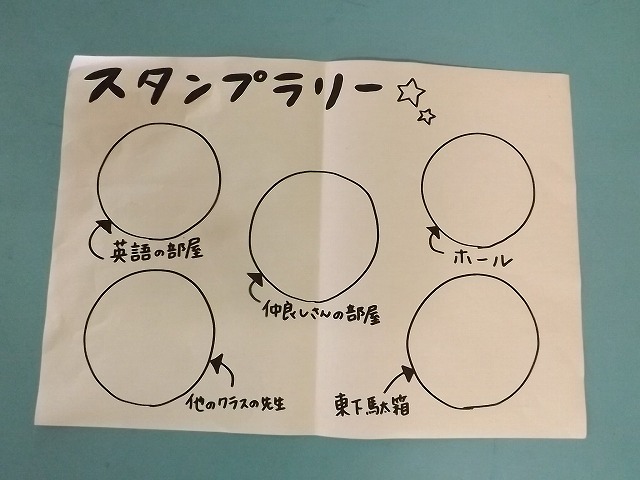 スタンプラリー
英語の部屋
ホール
仲良しさんの部屋
他のクラスの先生
東下駄箱